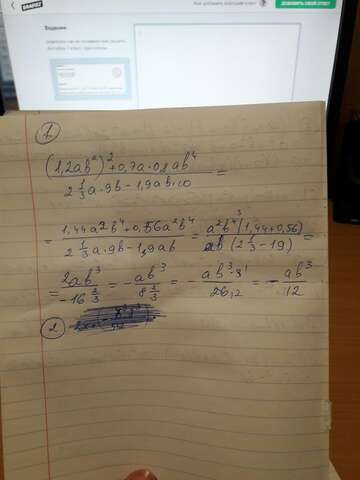 Как добавить хороший ответ?
ДОБАВИТЬ СВОЙ ОТВЕТ
Задание
1
(1,2ab²)² + 0,7a · 0,8ab⁴ / 2 1/3 a · 9b − 1,9ab · 10 =
= 1,44a²b⁴ + 0,56a²b⁴ / 2 1/3 a · 9b − 1,9ab = a²b⁴ ³ (1,44 + 0,56) / ab (2 1/3 − 19) =
= 2ab³ / −16 2/3 = − ab³ / 8 2/3 = − ab³ · 3 / 26,2 = − ab³ / 12
2